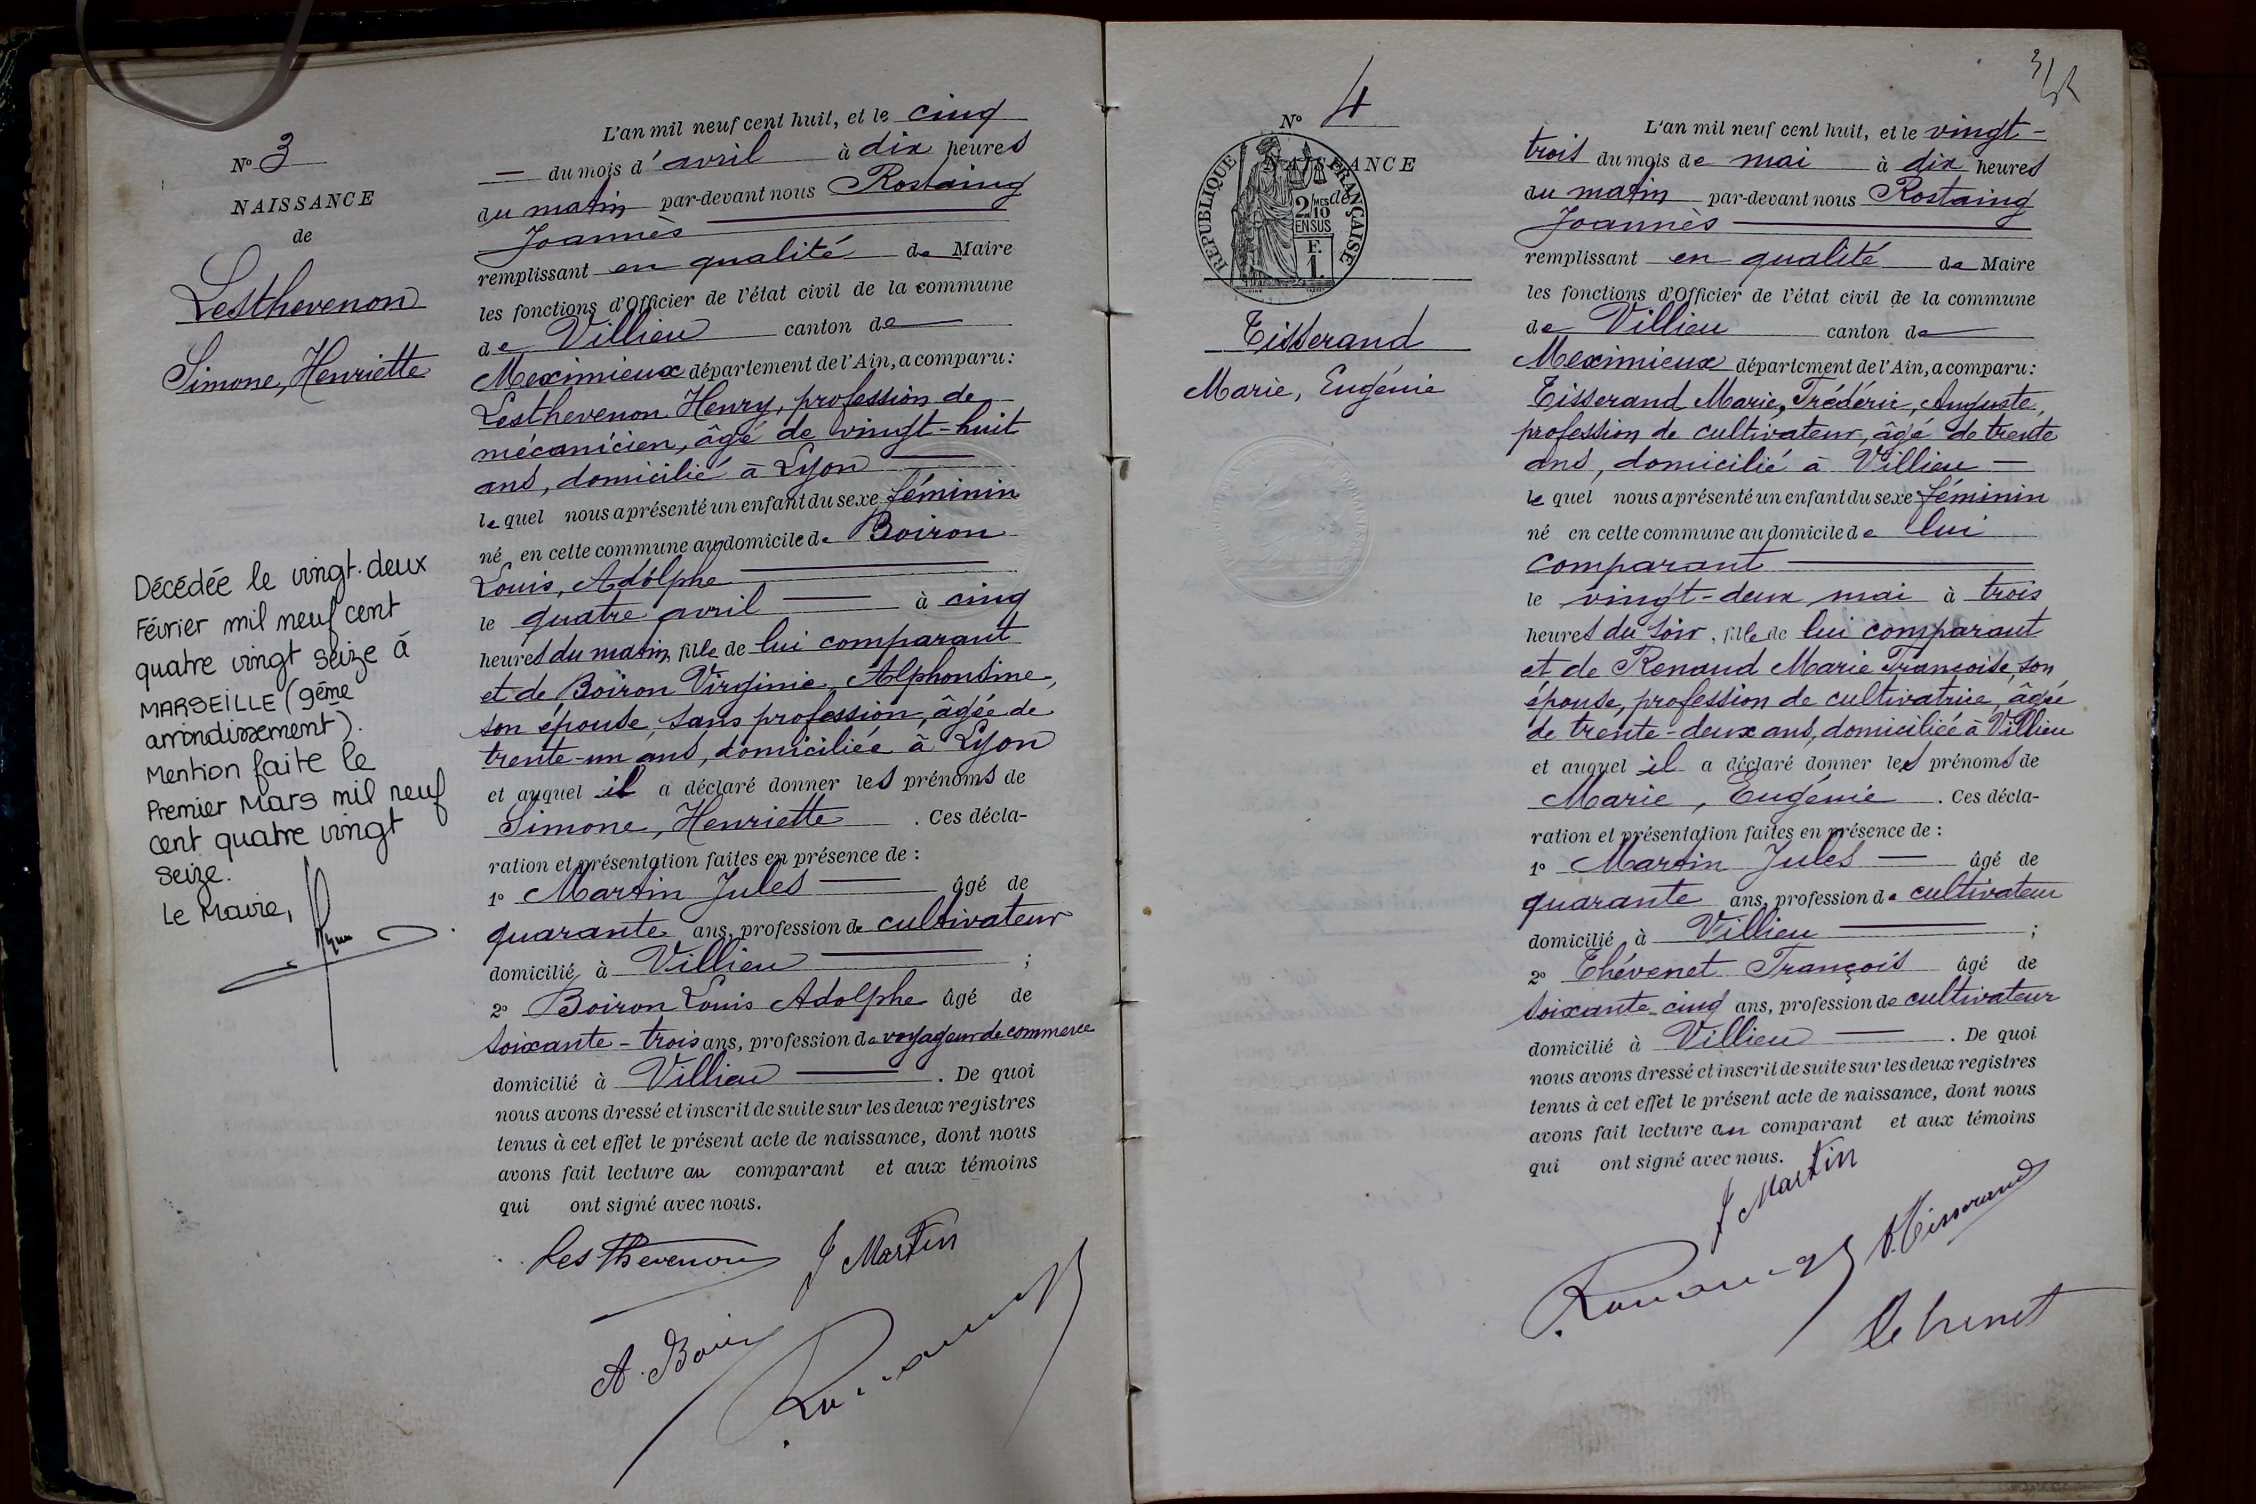 N° 3
NAISSANCE
de
Lesthevenon
Simone, Henriette
Décédée le vingt-deux
Février mil neuf cent
quatre vingt seize à
MARSEILLE (9ème
arrondissement).
Mention faite le
Premier Mars mil neuf
cent quatre vingt
seize.
Le Maire,
L'an mil neuf cent huit, et le cinq
— du mois d'avril à dix heures
du matin par-devant nous Rostaing
Joannès
remplissant en qualité de Maire
les fonctions d'Officier de l'état civil de la commune
de Villieu canton de
Meximieux département de l'Ain, a comparu :
Lesthevenon Henry, profession de
mécanicien, âgé de vingt-huit
ans, domicilié à Lyon
lequel nous a présenté un enfant du sexe féminin
né en cette commune au domicile de Boiron
Louis, Adolphe
le quatre avril à cinq
heures du matin, fille de lui comparant
et de Boiron Virginie, Alphonsine,
son épouse, sans profession, âgée de
trente-un ans, domiciliée à Lyon
et auquel il a déclaré donner les prénoms de
Simone, Henriette . Ces décla-
ration et présentation faites en présence de :
1° Martin Jules âgé de
quarante ans, profession de cultivateur
domicilié à Villieu ;
2° Boiron Louis Adolphe âgé de
soixante-trois ans, profession de voyageur de commerce
domicilié à Villieu . De quoi
nous avons dressé et inscrit de suite sur les deux registres
tenus à cet effet le présent acte de naissance, dont nous
avons fait lecture au comparant et aux témoins
qui ont signé avec nous.
Lesthevenon J Martin
A. Boiron
N° 4
NAISSANCE
de
RÉPUBLIQUE FRANÇAISE
2/10 MES
EN SUS
F.
1.
Tisserand
Marie, Eugénie
L'an mil neuf cent huit, et le vingt-
trois du mois de mai à dix heures
du matin par-devant nous Rostaing
Joannès
remplissant en qualité de Maire
les fonctions d'Officier de l'état civil de la commune
de Villieu canton de
Meximieux département de l'Ain, a comparu :
Tisserand Marie, Frédéric, Auguste,
profession de cultivateur, âgé de trente
ans, domicilié à Villieu —
lequel nous a présenté un enfant du sexe féminin
né en cette commune au domicile de lui
comparant
le vingt-deux mai à trois
heures du soir, fille de lui comparant
et de Renaud Marie Françoise, son
épouse, profession de cultivatrice, âgée
de trente-deux ans, domiciliée à Villieu
et auquel il a déclaré donner les prénoms de
Marie, Eugénie . Ces décla-
ration et présentation faites en présence de :
1° Martin Jules — âgé de
quarante ans, profession de cultivateur
domicilié à Villieu ;
2° Thévenet François âgé de
soixante cinq ans, profession de cultivateur
domicilié à Villieu . De quoi
nous avons dressé et inscrit de suite sur les deux registres
tenus à cet effet le présent acte de naissance, dont nous
avons fait lecture au comparant et aux témoins
qui ont signé avec nous.
J Martin
Tisserand